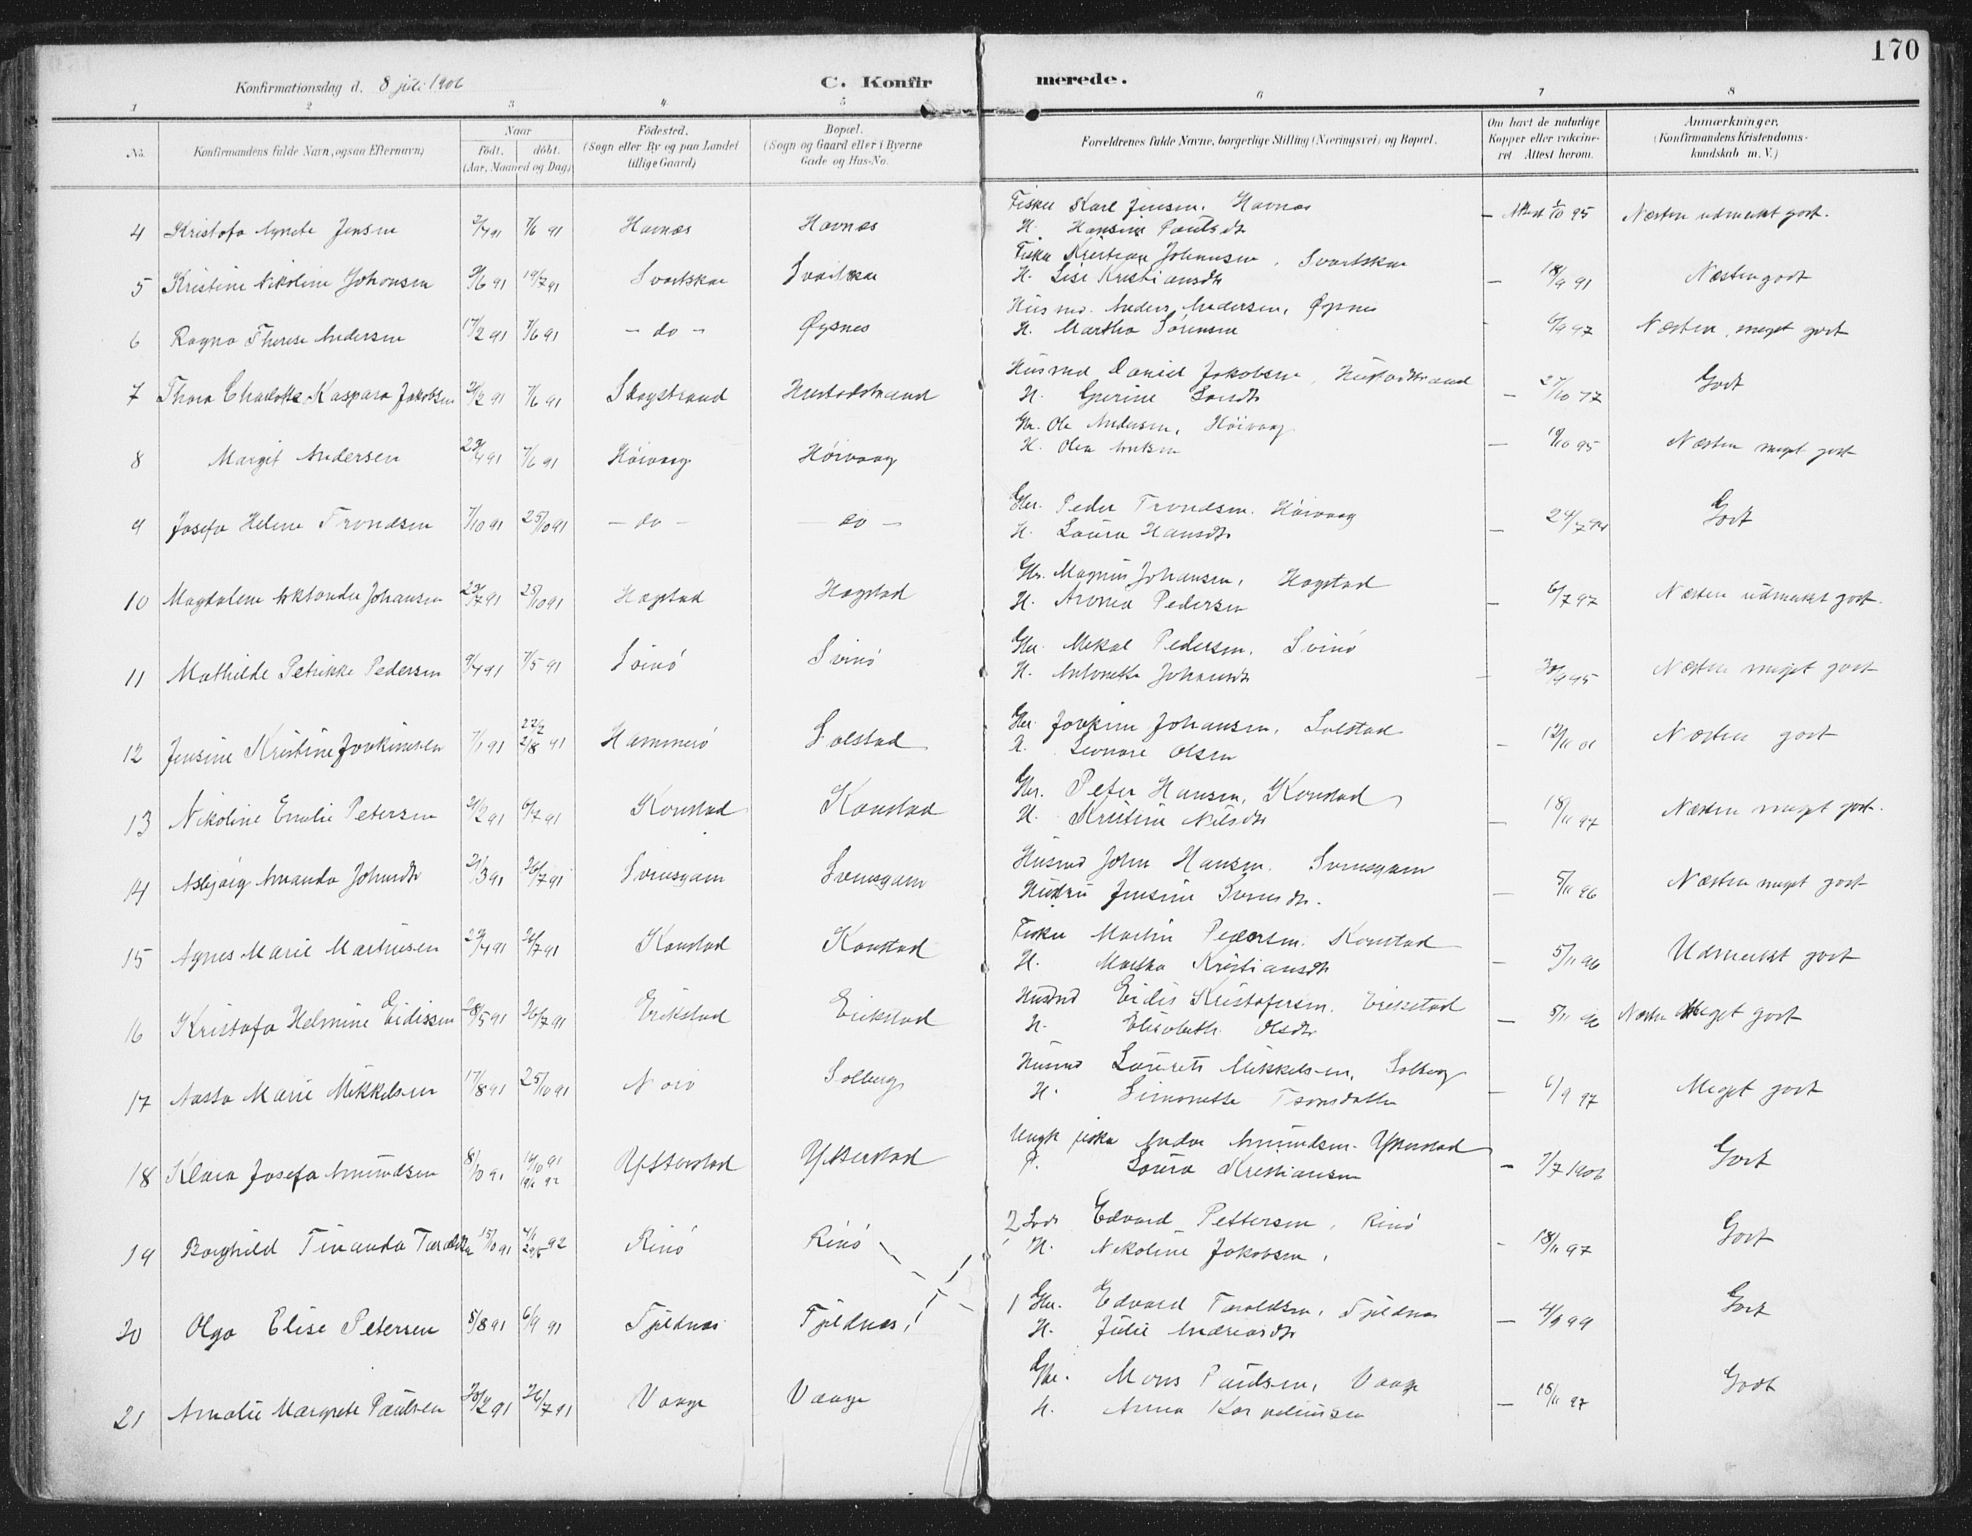 170
Konfirmationsdag d. 8 juli 1906 C. Konfirmerede.
1 2 3 4 5 6 7 8
No. Konfirmandens fulde Navn, ogsaa Efternavn) Naar Födt. döbt. (Aar, Maaned og Dag) Födested. (Sogn eller By og paa Landet tillige Gaard) Bopæl. (Sogn og Gaard eller i Byerne Gade og Hus-No. Forældrenes fulde Navne, borgerlige Stilling (Næringsvei) og Bopæl. Om havt de naturlige Kopper eller vakcineret. Attest herom. Anmærkninger. (Konfirmandens Kristendomskundskab m. V.)
4 Kristofa Agnete Jensen 7/6 91 Havnæs Havnæs Fisker Karl Jensen, Havnæs – Attest 1/10 95 Næsten udmerket godt.
H. Hansine Paulsdtr
5 Kristine Nikoline Johansen 9/6 91 19/7 91 Svartskar Svartskar Fisker Kristian Johansen, Svartskar – 18/9 91 Næsten godt
H. Lise Kristiansdtr
6 Ragna Therese Andersen 17/2 91 7/6 91 – do – Øysnes Husmd. Anders Andersen, Øysnes 6/9 97 Næsten meget godt
H. Martha Sørensen
7 Thora Charlotte Kaspara Jakobsen 7/6 91 Skogstrand Hustadstrand Husmd Daniel Jakobsen, Hustadstrand – 27/10 97 Godt
H. Gurine
8 Margit Andersen 23/4 91 7/6 91 Høivaag Høivaag Gbr. Ole Andersen, Høivaag – 19/10 95 Næsten meget godt
H. Olea
9 Josefa Helene Trondsen 7/10 91 25/10 91 – do – – do – Gbr. Peder Trondsen. Høivaag – 24/7 94 Godt
H. Laura Hansdtr
10 Magdalene Johansen 23/7 91 25/10 91 Hagstad Hagstad Gbr. Magnus Johansen, Hagstad – 6/7 97 Næsten udmerket godt.
H. Pedersen
11 Mathilde Petrikke Pedersen 9/4 91 7/5 91 Svinø Svinø Gbr. Mikal Pedersen, Svinø – 30/9 95 Næsten meget godt
H. Antonette Johansdtr
12 Jensine Kristine Joakimsen 7/1 91 22/2 2/8 91 Hammerø Solstad Gbr. Joakim Johansen, Solstad – 12/11 01 Næsten godt
H. Leonore Olsen
13 Nikoline Emelie Petersen 21/2 91 6/7 91 Konstad Konstad Gbr. Peter Hansen, Konstad – 18/11 97 Næsten meget godt.
H. Kristine Nilsdtr
14 Asbjørg Amanda Johnsdtr 21/3 91 26/7 91 Svensgam Svensgam Husmd John Hansen. Svensgam – 5/11 96 Næsten meget godt
Hustru Jensine Svensdtr.
15 Agnes Marie Martinsen 29/4 91 26/7 91 Konstad Konstad Fisker Martin Pedersen. Konstad – 5/11 96 Udmerket godt
H. Martha Kristiansdtr
16 Kristofa Helmine Eidissen 28/5 91 26/7 91 Erikstad Erikstad Husmd Eidis Kristofersen. Erikstad – 5/11 96 Næsten meget godt
H. Elisabeth Olsdtr
17 Aasta Marie Mikkelsen 17/8 91 25/10 91 Solberg Husmd Laurits Mikkelsen, Solberg – 6/9 97 Meget godt
H. Simonette
18 Klara Josefa Amundsen 8/10 91 Ytterstad Ytterstad Ungk fisker Amundsen. Ytterstad – 7/7 1906 Godt
P. Laura Kristiansen
19 Borghild Tinanda 15/10 91 Rinø Rinø 2 Edvard Pettersen, Rinø – 18/11 97 Godt
H. Nikoline Jakobsen,
20 Olga Elise Petersen 8/8 91 6/9 91 Tjeldnæs Tjeldnæs, 1 Gbr. Edvard Taraldsen, Tjeldnæs – 99 Godt
H. Julie Andreasdtr
21 Amalie Margrete Paulsen 20/2 91 26/7 91 Vaage Vaage Gbr. Mons Paulsen, Vaage – 18/11 97 Godt
H. Anna Korneliussen